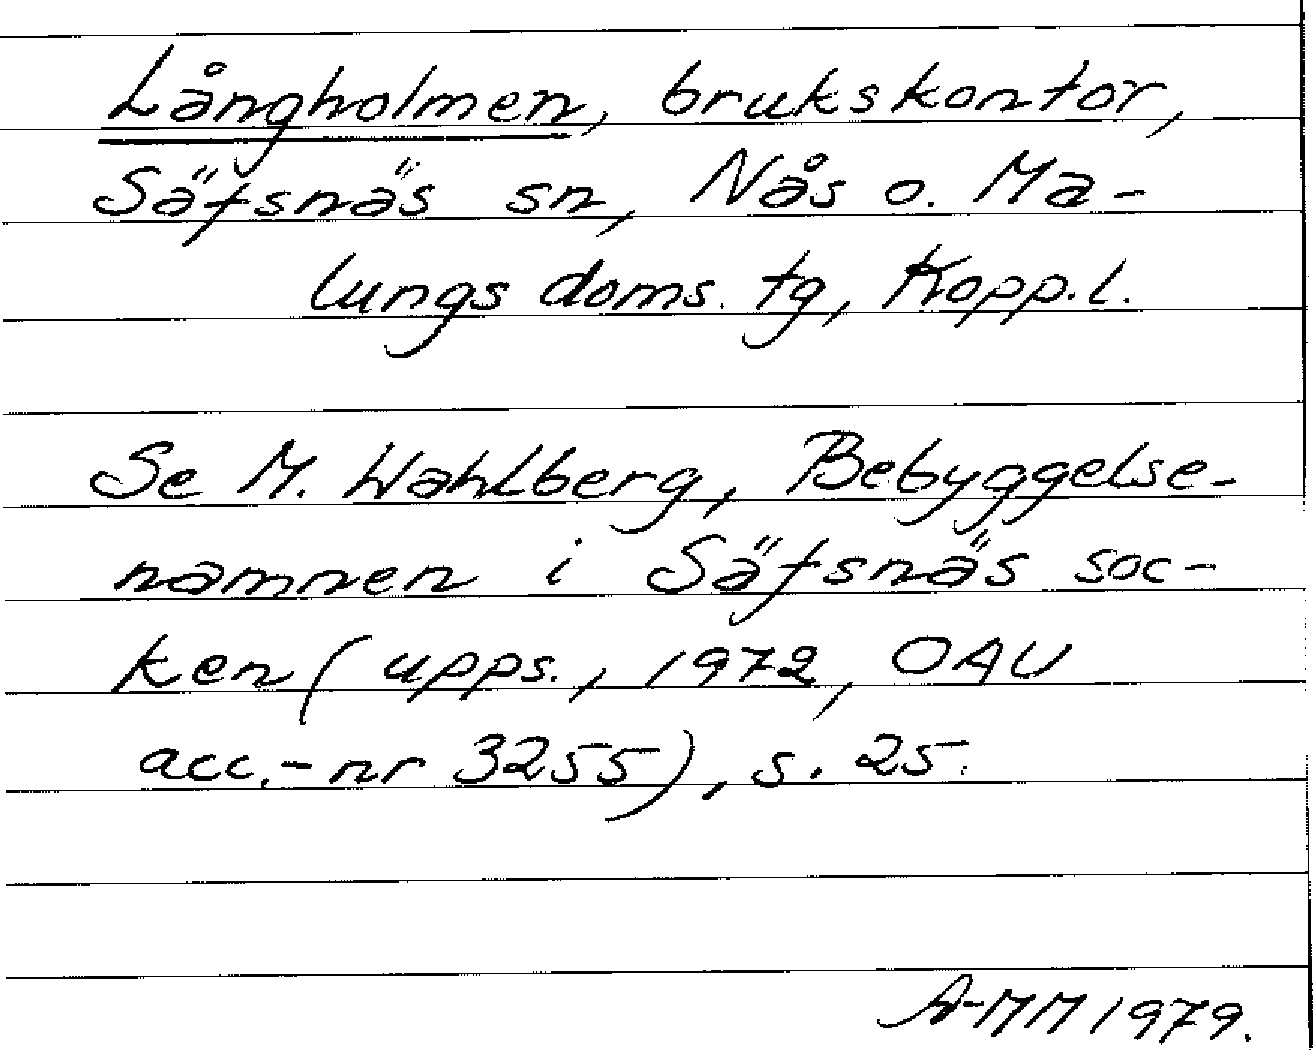 Långholmen, brukskontor,
Säfsnäs sn, Nås o. Ma-
lungs doms. tg, Kopp.l.
Se M. Wahlberg, Bebyggelse-
namnen i Säfsnäs soc-
ken (upps., 1972, OAU
acc.-nr 3255), s. 25.
A-MM 1979.